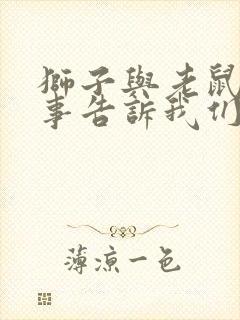 獅子與老鼠
事告訴我们
薄涼一色